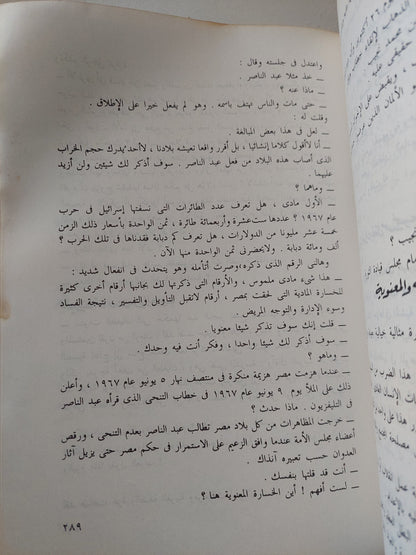 واعتدل فى جلسته وقال :
ــ خذ مثلا عبد الناصر .
ــ ماذا عنه ؟
ــ حتى مات والناس تهتف باسمه . وهو لم يفعل خيرا على الإطلاق .
وقلت له :
ــ لعل فى هذا بعض المبالغة .
ــ أنا لاأقول كلاما إنشائيا ، بل أقرر واقعا تعيشه بلادنا ، لاأحد يدرك حجم الخراب
الذى أصاب هذه البلاد من فعل عبد الناصر . سوف أذكر لك شيئين ولن أزيد
عليهما .
ــ وماهما ؟
ــ الأول مادى ، هل تعرف عدد الطائرات التى نسفتها إسرائيل فى حرب
عام ١٩٦٧ ؟ عددها ست عشرة وأربعمائة طائرة ، ثمن الواحدة بأسعار ذلك الزمن
خمسة عشر مليونا من الدولارات ، هل تعرف كم دبابة فقدناها فى تلك الحرب ؟
ألف ومائة دبابة . ولايحضرنى ثمن الواحدة منها الآن .
وهالنى الرقم الذى ذكره ، وصرت أتأمله وهو يتحدث فى انفعال شديد :
ــ هذا شىء مادى ملموس ، والأرقام التى ذكرتها لك بجانبها أرقام أخرى كثيرة
للخسارة المادية التى لحقت بمصر ، أرقام لاتقبل التأويل والتفسير ، نتيجة الفساد
وسوء الإدارة والتوجه المريض .
ــ قلت إنك سوف تذكر شيئا معنويا .
ــ سوف أذكر لك شيئا واحدا ، وفكر أنت فيه وحدك .
ــ وماهو ؟
ــ عندما هزمت مصر هزيمة منكرة فى منتصف نهار ٥ يونيو عام ١٩٦٧ ، وأعلن
ذلك على الملأ يوم ٩ يونيو عام ١٩٦٧ فى خطاب التنحى الذى قرأه عبد الناصر
فى التليفزيون . ماذا حدث ؟
ــ خرجت المظاهرات من كل بلاد مصر تطالب عبد الناصر بعدم التنحى ، ورقص
أعضاء مجلس الأمة عندما وافق الزعيم على الاستمرار فى حكم مصر حتى يزيل آثار
العدوان حسب تعبيره آنذاك .
ــ أنت قد قلتها بنفسك .
ــ لست أفهم ! أين الخسارة المعنوية هنا ؟
٢٨٩